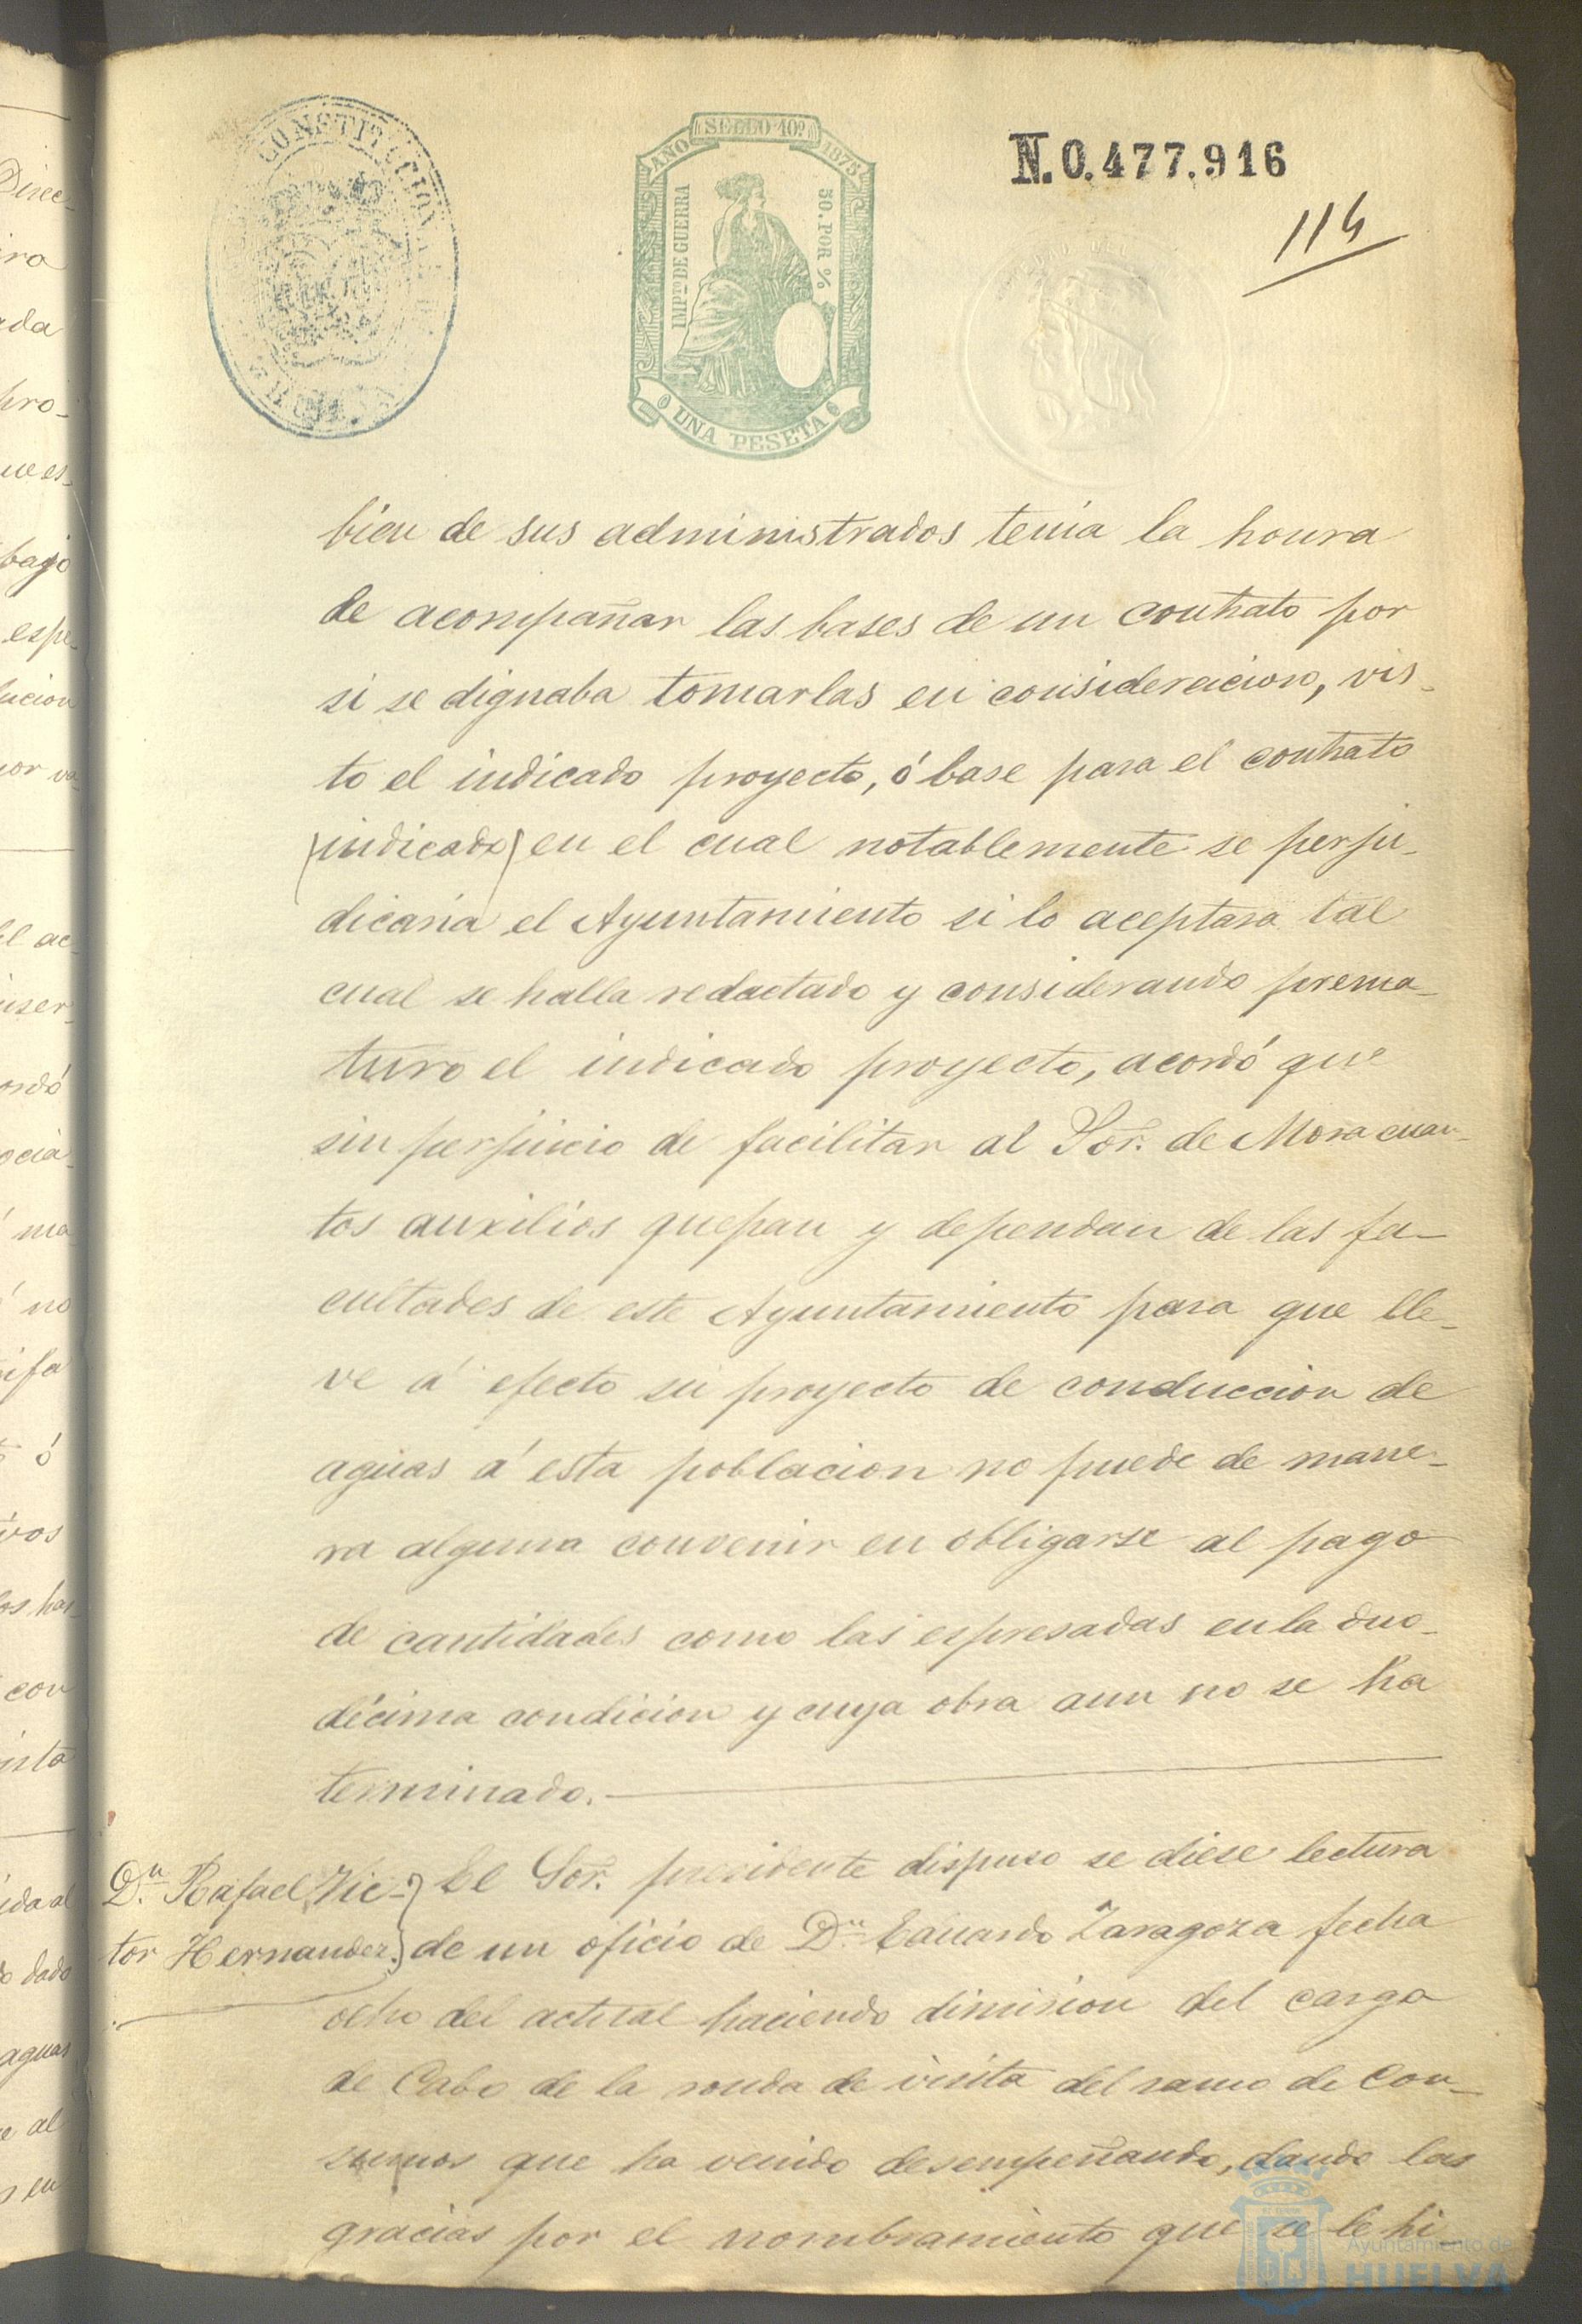 CONSTITUCIONAL
HUELVA
SELLO 10º
AÑO 1876
IMPTO DE GUERRA
50. POR %
UNA PESETA
N.0.477.916
114
bien de sus administrados tenia la honra
de acompañar las bases de un contrato por
si se dignaba tomarlas en consideracion, vis-
to el indicado proyecto, ó base para el contrato
(indicado) en el cual notablemente se perju-
dicaria el Ayuntamiento si lo aceptara tal
cual se halla redactado y considerando prema-
turo el indicado proyecto, acordó que
sin perjuicio de facilitar al Sor. de Mora cuan-
tos auxilios quepan y dependan de las fa-
cultades de este Ayuntamiento para que lle-
ve á efecto su proyecto de conduccion de
aguas á esta poblacion no puede de mane-
ra alguna convenir en obligarse al pago
de cantidades como las espresadas en la duo-
décima condicion y cuya obra aun no se ha
terminado.
Dn. Rafael Vic-
tor Hernandez.
El Sor. presidente dispuso se diese lectura
de un oficio de Dn Eduardo Zaragoza fecha
ocho del actual haciendo dimision del cargo
de Cabo de la ronda de visita del ramo de Con-
sumos que ha venido desempeñando, dando las
gracias por el nombramiento que se le hi
Ayuntamiento de
HUELVA